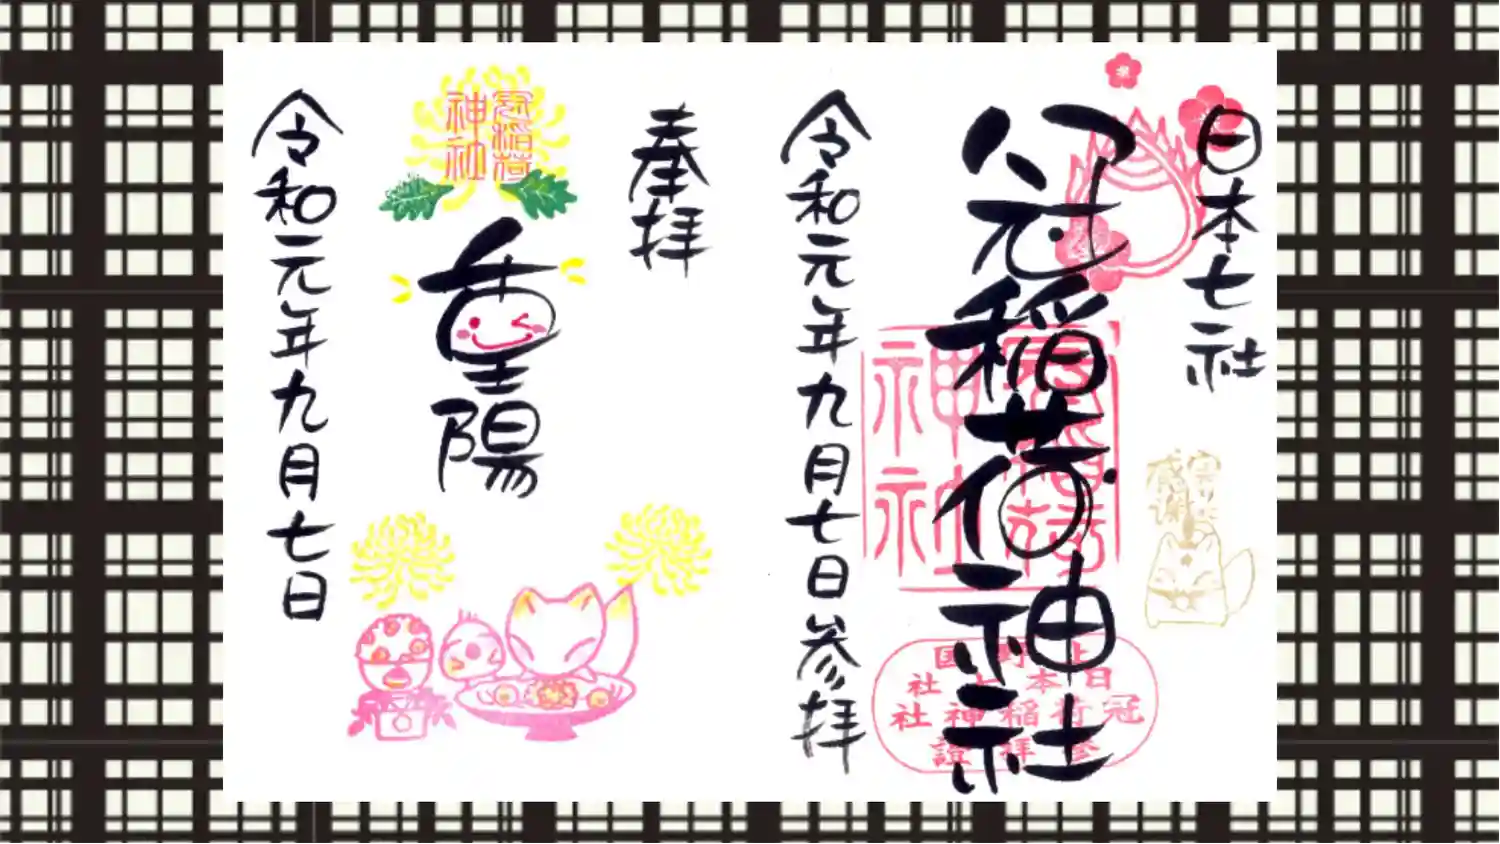 日本七社
冠稲荷神社
冠稲荷神社
上野国
日本七社
冠稲荷神社
参拝證
令和元年九月七日参拝
奉拝
冠稲荷神社
重陽
令和元年九月七日